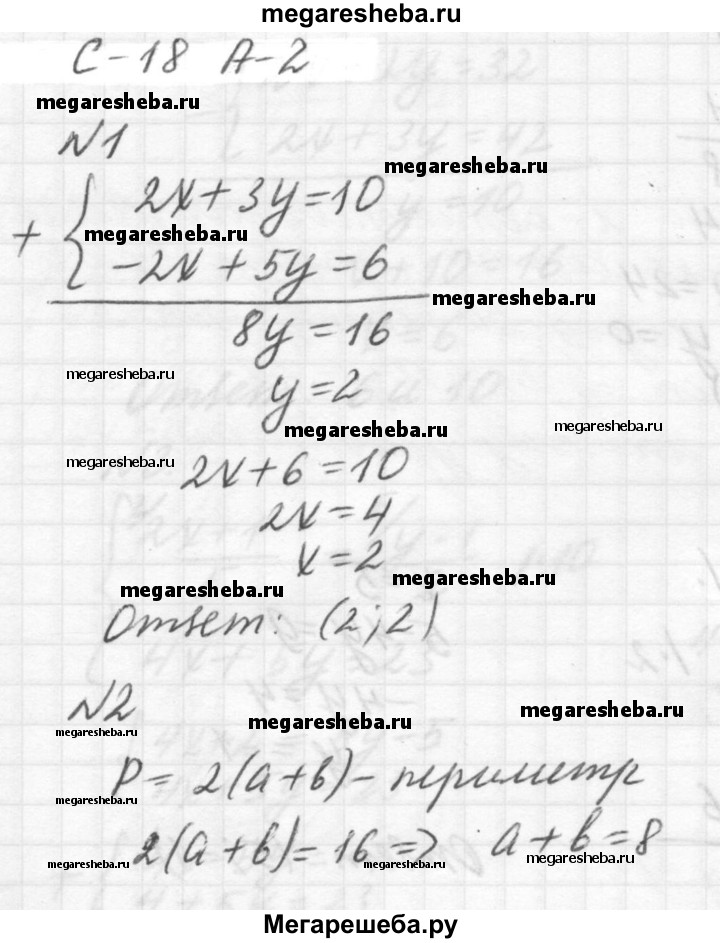 megaresheba.ru
С-18 А-2
megaresheba.ru
N1
megaresheba.ru
2x+3y=10
+ { megaresheba.ru
-2x+5y=6
megaresheba.ru
8y=16
megaresheba.ru
y=2
megaresheba.ru
megaresheba.ru
megaresheba.ru
2x+6=10
2x=4
x=2
megaresheba.ru
megaresheba.ru
Ответ: (2;2)
N2
megaresheba.ru
megaresheba.ru
megaresheba.ru
P= 2(a+b)- периметр
megaresheba.ru
2(a+b)=16=> a+b=8
megaresheba.ru
megaresheba.ru
megaresheba.ru
Мегарешеба.ру